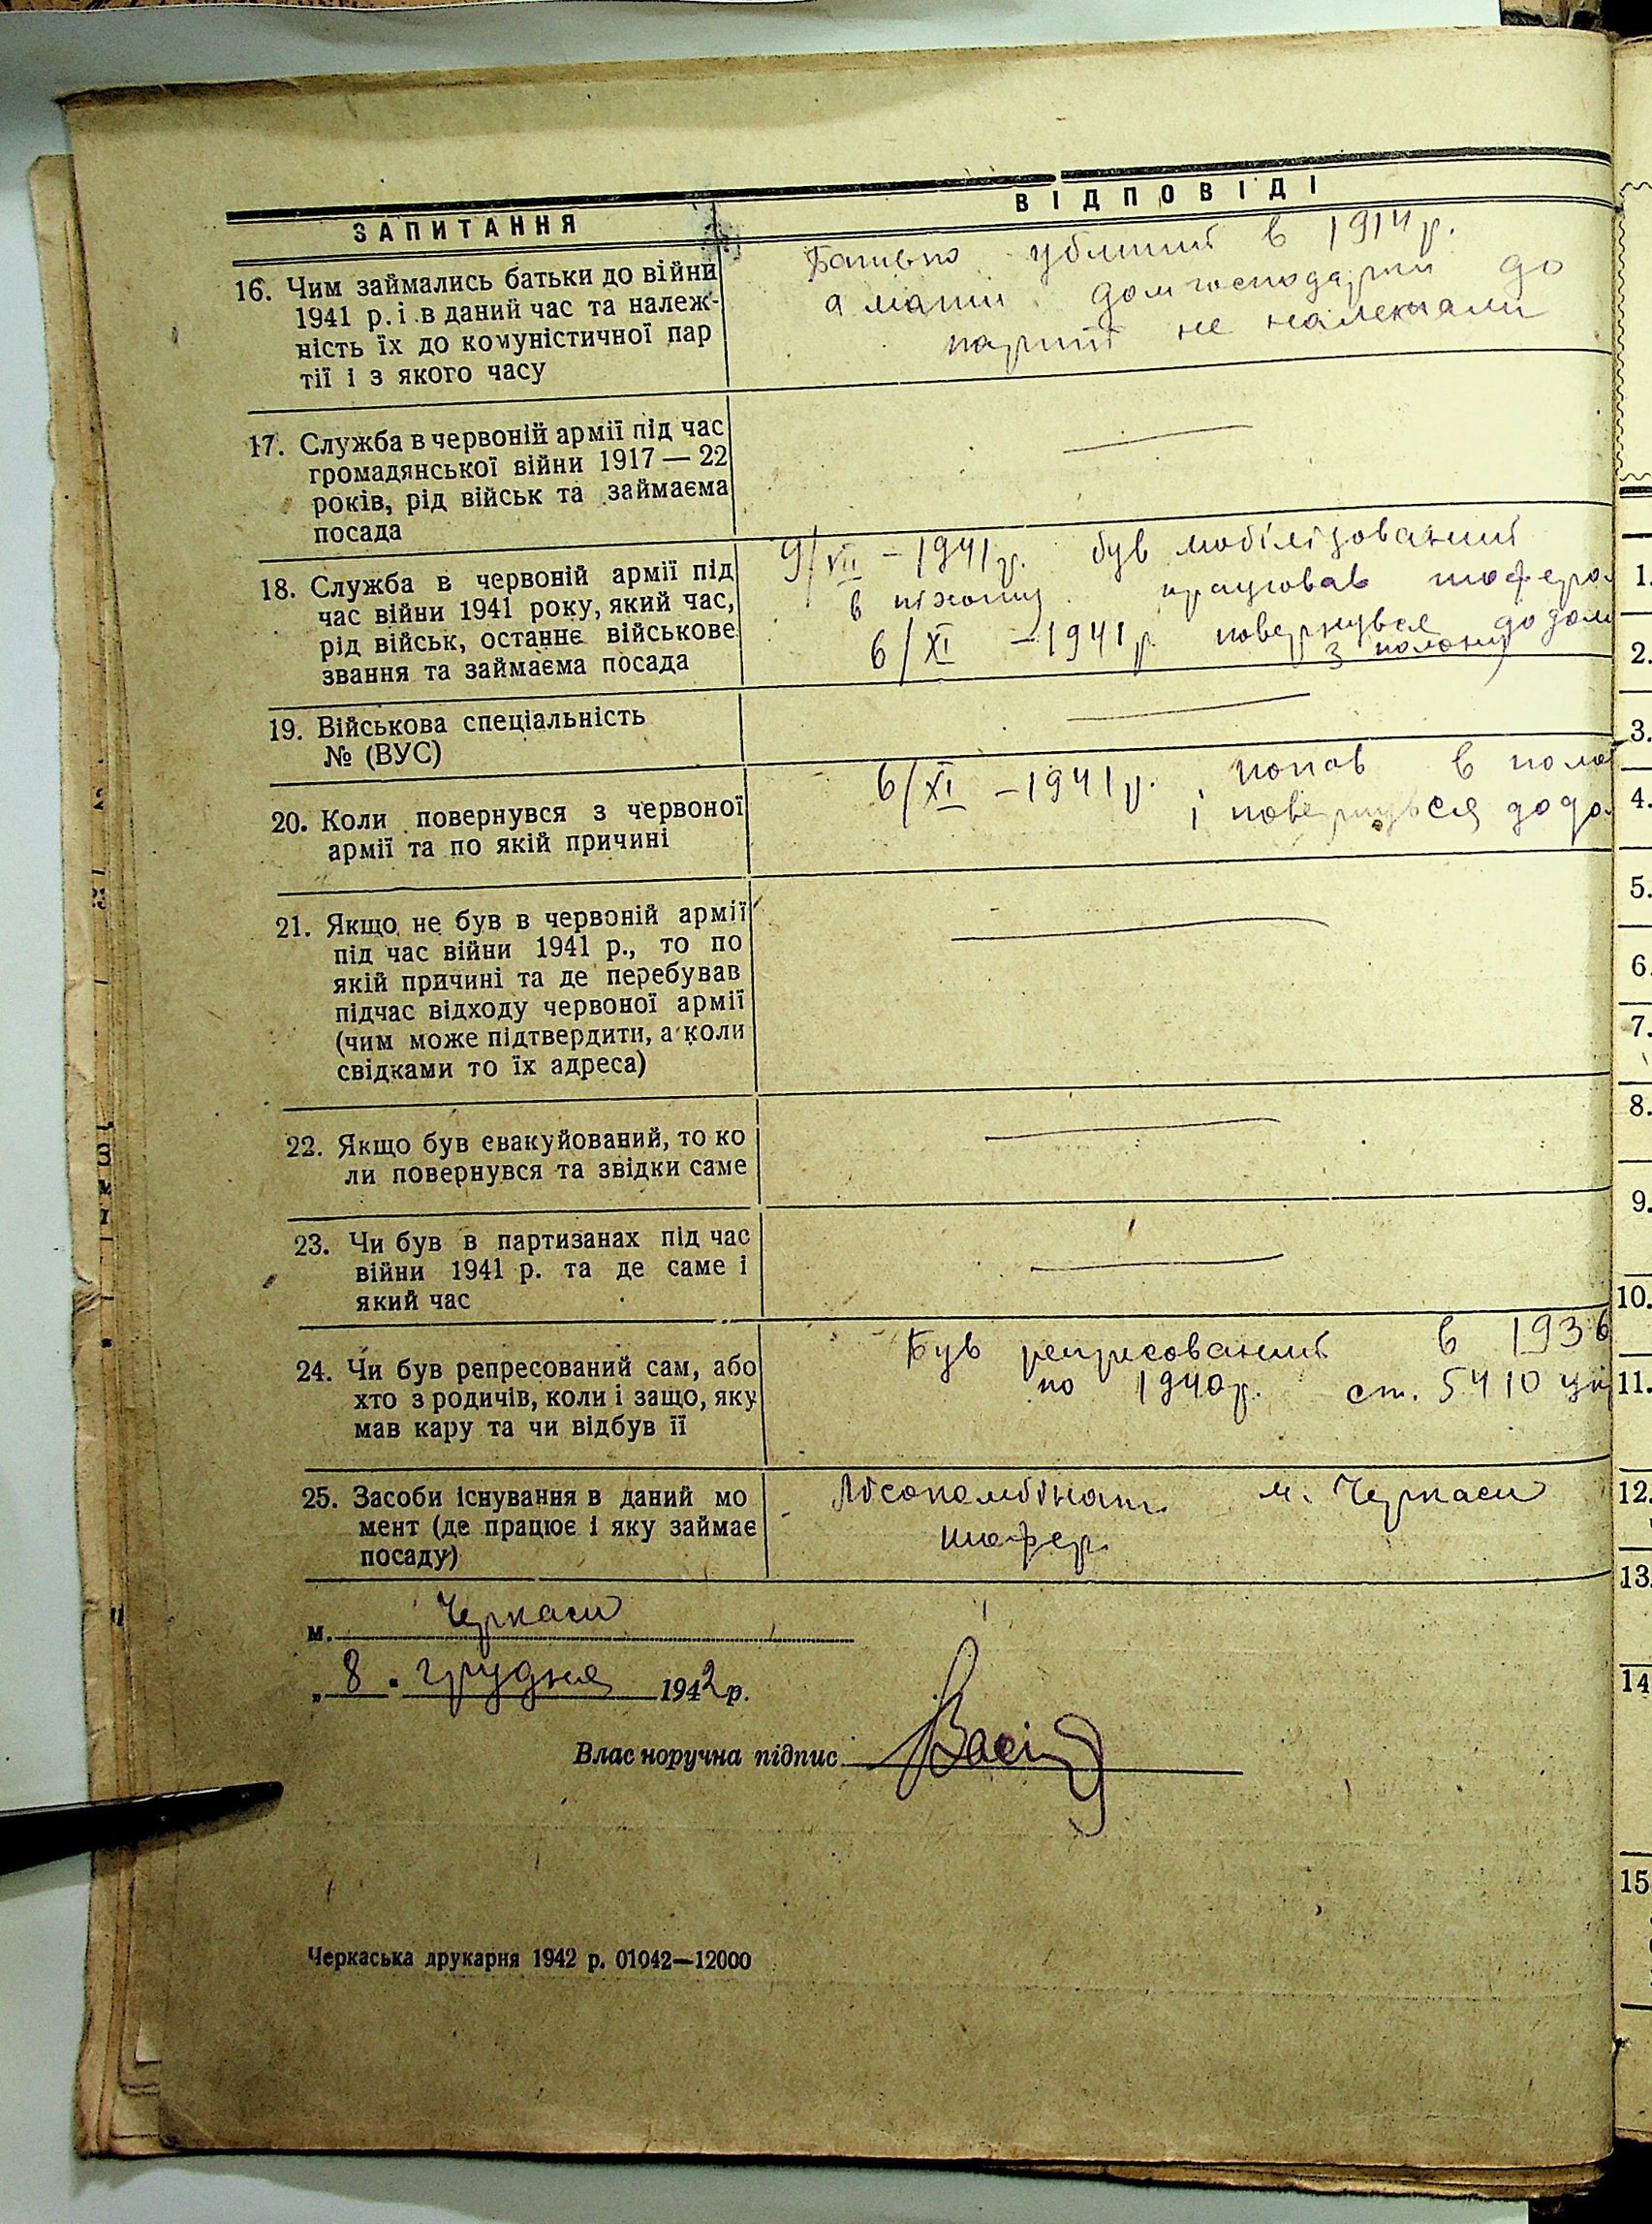 ЗАПИТАННЯ
ВІДПОВІДІ
16. Чим займались батьки до війни
1941 р. і в даний час та належ-
ність їх до комуністичної пар
тії і з якого часу
Батько убитий в 1914 р.
а мати домгосподарки до
партії не належали
17. Служба в червоній армії під час
громадянської війни 1917 — 22
років, рід військ та займаєма
посада
18. Служба в червоній армії під
час війни 1941 року, який час,
рід військ, останнє військове
звання та займаєма посада
9/VII – 1941 р. був мобілізований
в піхоту працював шофером
6/XI – 1941 р. повернувся додом
з полону
19. Військова спеціальність
№ (ВУС)
20. Коли повернувся з червоної
армії та по якій причині
6/XI – 1941 р. попав в поло
і повернувся додо
21. Якщо не був в червоній армії
під час війни 1941 р., то по
якій причині та де перебував
підчас відходу червоної армії
(чим може підтвердити, а коли
свідками то їх адреса)
22. Якщо був евакуйований, то ко
ли повернувся та звідки саме
23. Чи був в партизанах під час
війни 1941 р. та де саме і
який час
24. Чи був репресований сам, або
хто з родичів, коли і защо, яку
мав кару та чи відбув її
Був репресований в 1936
по 1940 р. ст. 5410 ук
25. Засоби існування в даний мо
мент (де працює і яку займає
посаду)
Лісокомбінат м. Черкаси
шофер
м. Черкаси
„ 8 " грудня 1942 р.
Власноручна підпис
Черкаська друкарня 1942 р. 01042—12000
1.
2.
3.
4.
5.
6.
7.
8.
9.
10.
11.
12.
13.
14
15